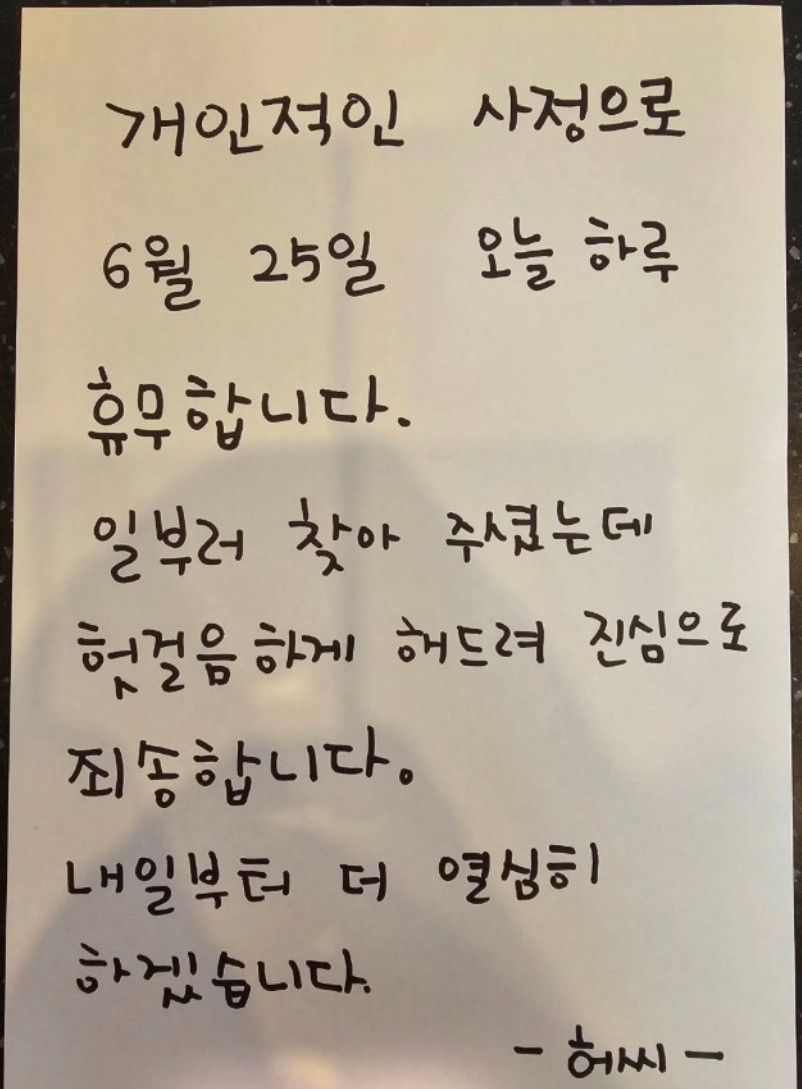 개인적인 사정으로
6월 25일 오늘 하루
휴무합니다.
일부러 찾아 주셨는데
헛걸음하게 해드려 진심으로
죄송합니다.
내일부터 더 열심히
하겠습니다.
- 허씨 -